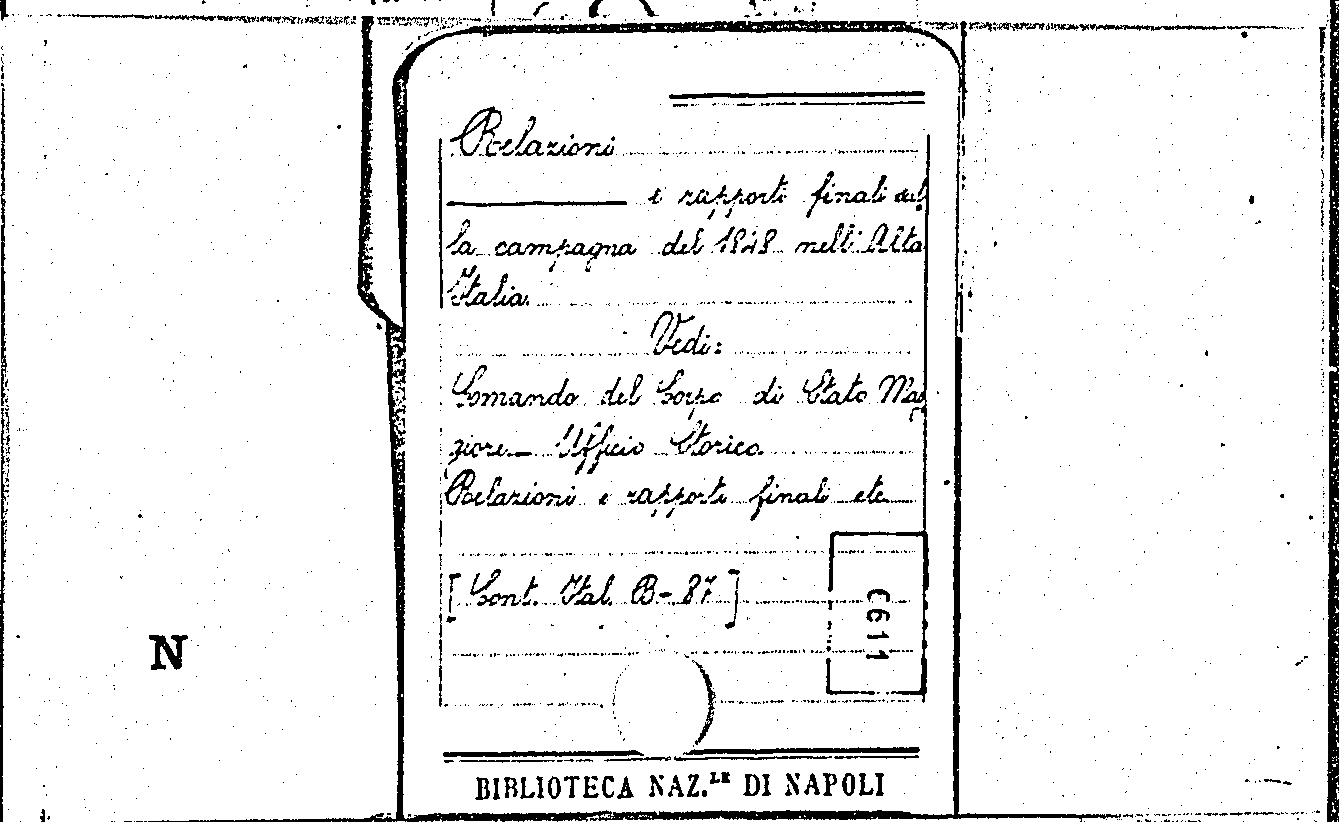 Relazioni
e rapporti finali sul
la campagna del 1848 nell'Alta
Italia.
Vedi:
Comando del Corpo di Stato Mag
giore - Ufficio Storico
Relazioni e rapporti finali etc
[Cont. Ital. B-87]
0611
N
BIBLIOTECA NAZ.LE DI NAPOLI